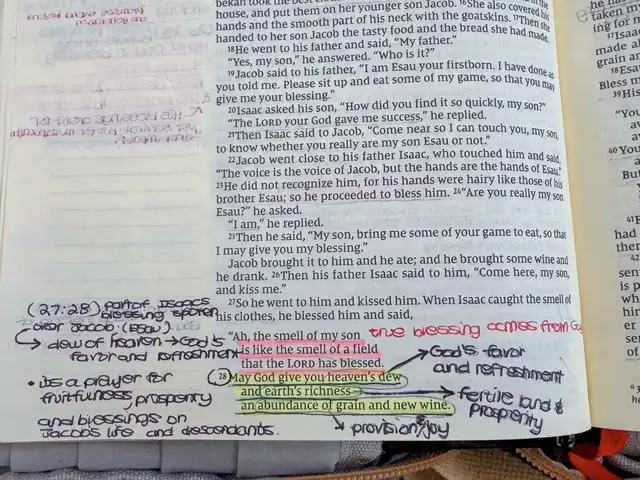 bekah took the best
house, and put them on her younger son Jacob. 16She also covered his
hands and the smooth part of his neck with the goatskins. 17Then she
handed to her son Jacob the tasty food and the bread she had made.
18He went to his father and said, “My father.”
“Yes, my son,” he answered. “Who is it?”
19Jacob said to his father, “I am Esau your firstborn. I have done as
you told me. Please sit up and eat some of my game, so that you may
give me your blessing.”
20Isaac asked his son, “How did you find it so quickly, my son?”
“The LORD your God gave me success,” he replied.
21Then Isaac said to Jacob, “Come near so I can touch you, my son,
to know whether you really are my son Esau or not.”
22Jacob went close to his father Isaac, who touched him and said,
“The voice is the voice of Jacob, but the hands are the hands of Esau.”
23He did not recognize him, for his hands were hairy like those of his
brother Esau; so he proceeded to bless him. 24“Are you really my son
Esau?” he asked.
“I am,” he replied.
25Then he said, “My son, bring me some of your game to eat, so that
I may give you my blessing.”
Jacob brought it to him and he ate; and he brought some wine and
he drank. 26Then his father Isaac said to him, “Come here, my son,
and kiss me.”
27So he went to him and kissed him. When Isaac caught the smell of
his clothes, he blessed him and said,
“Ah, the smell of my son
is like the smell of a field
that the LORD has blessed.
28 May God give you heaven’s dew
and earth’s richness—
an abundance of grain and new wine.
true blessing comes from
God's favor
and refreshment
fertile land &
prosperity
provision/joy
(27:28) part of Isaac's
blessing spoken
over Jacob (Esau)
→ dew of heaven → God's
favor and refreshment
• its a prayer for
fruitfulness, prosperity
and blessings on
Jacob's life and descendants.
taken
ing for
37Isaac
made
grain an
38Esau
Bless
39His
“You
av
40You
an
But
41E
had
them
42
sen
is p
wh
him
er
ser
of